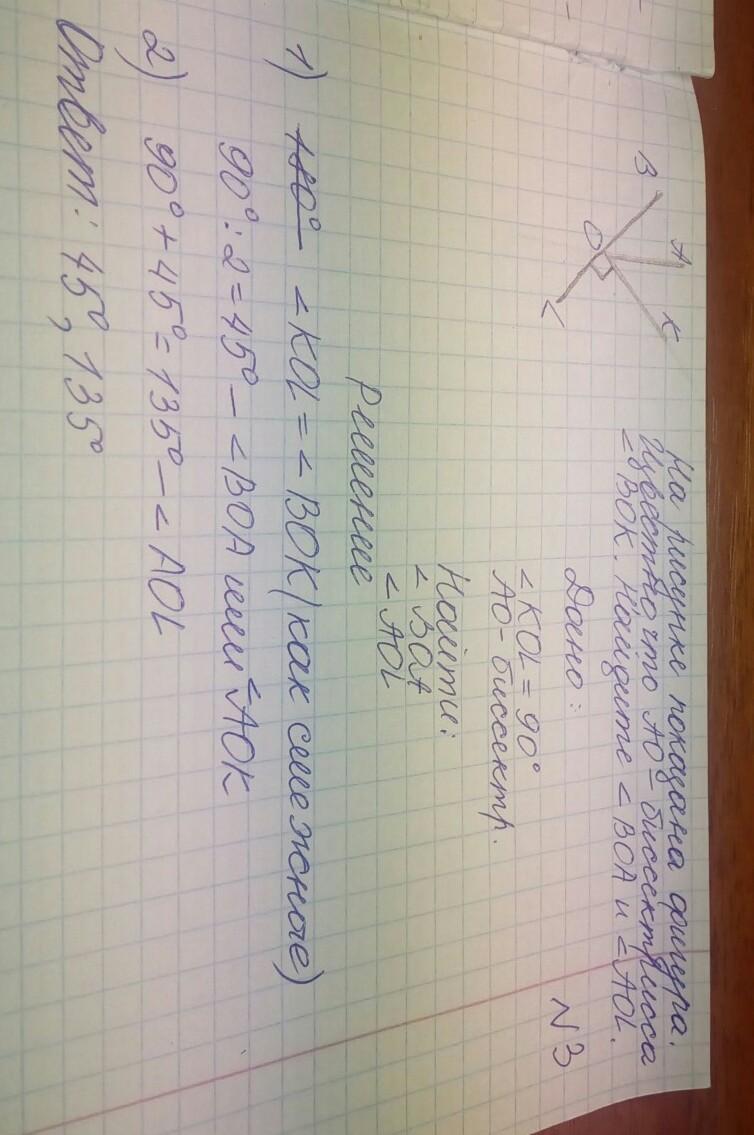 N3
На рисунке показана фигура.
Известно что АО – биссектрисса
< BOK. Найдите < BOA и < AOL.
B
A
K
O
L
Дано:
< KOL = 90°
AO - биссектр.
Найти:
< BOA
< AOL
Решение
1) 180° < KOL = < BOK (как смежные)
90° : 2 = 45° – < BOA или < AOK
2) 90° + 45° = 135° – < AOL
Ответ: 45°, 135°